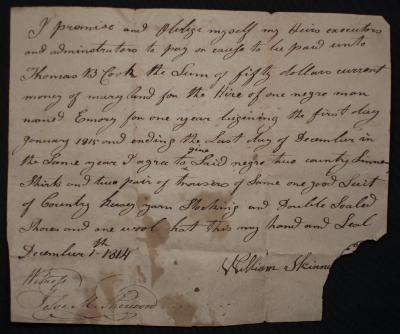 I promise and Oblige myself my Heirs executors
and adminstrators to pay or cause to be paid unto
Thomas B Cook the Sum of fifty dollars current
money of maryland for the Hire of one negro man
named Emory for one year begining the first day
January 1815 and ending the Last day of December in
the Same year I agree to give Said negro two country
Shirts and two pair of trousers of Same one good Suit
of Country Kersey yarn Stocking and Double Soaled
Shoes and one wool hat this my hand and Seal
December 1th 1814
William Skinne
Witness